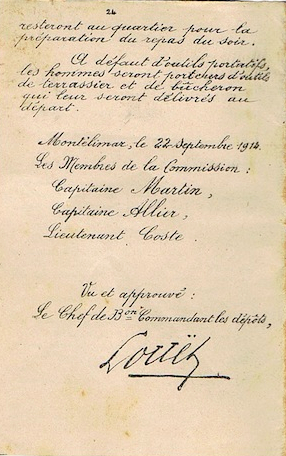 24
resteront au quartier pour la
préparation du repas du soir.
A défaut d'outils portatifs,
les hommes seront porteurs d'outils
de terrassier et de bûcheron
qui leur seront délivrés au
départ.
Montélimar, le 22 septembre 1914.
Les Membres de la Commission :
Capitaine Martin,
Capitaine Allier,
Lieutenant Coste.
Vu et approuvé :
Le Chef de Bon Commandant les dépôts,